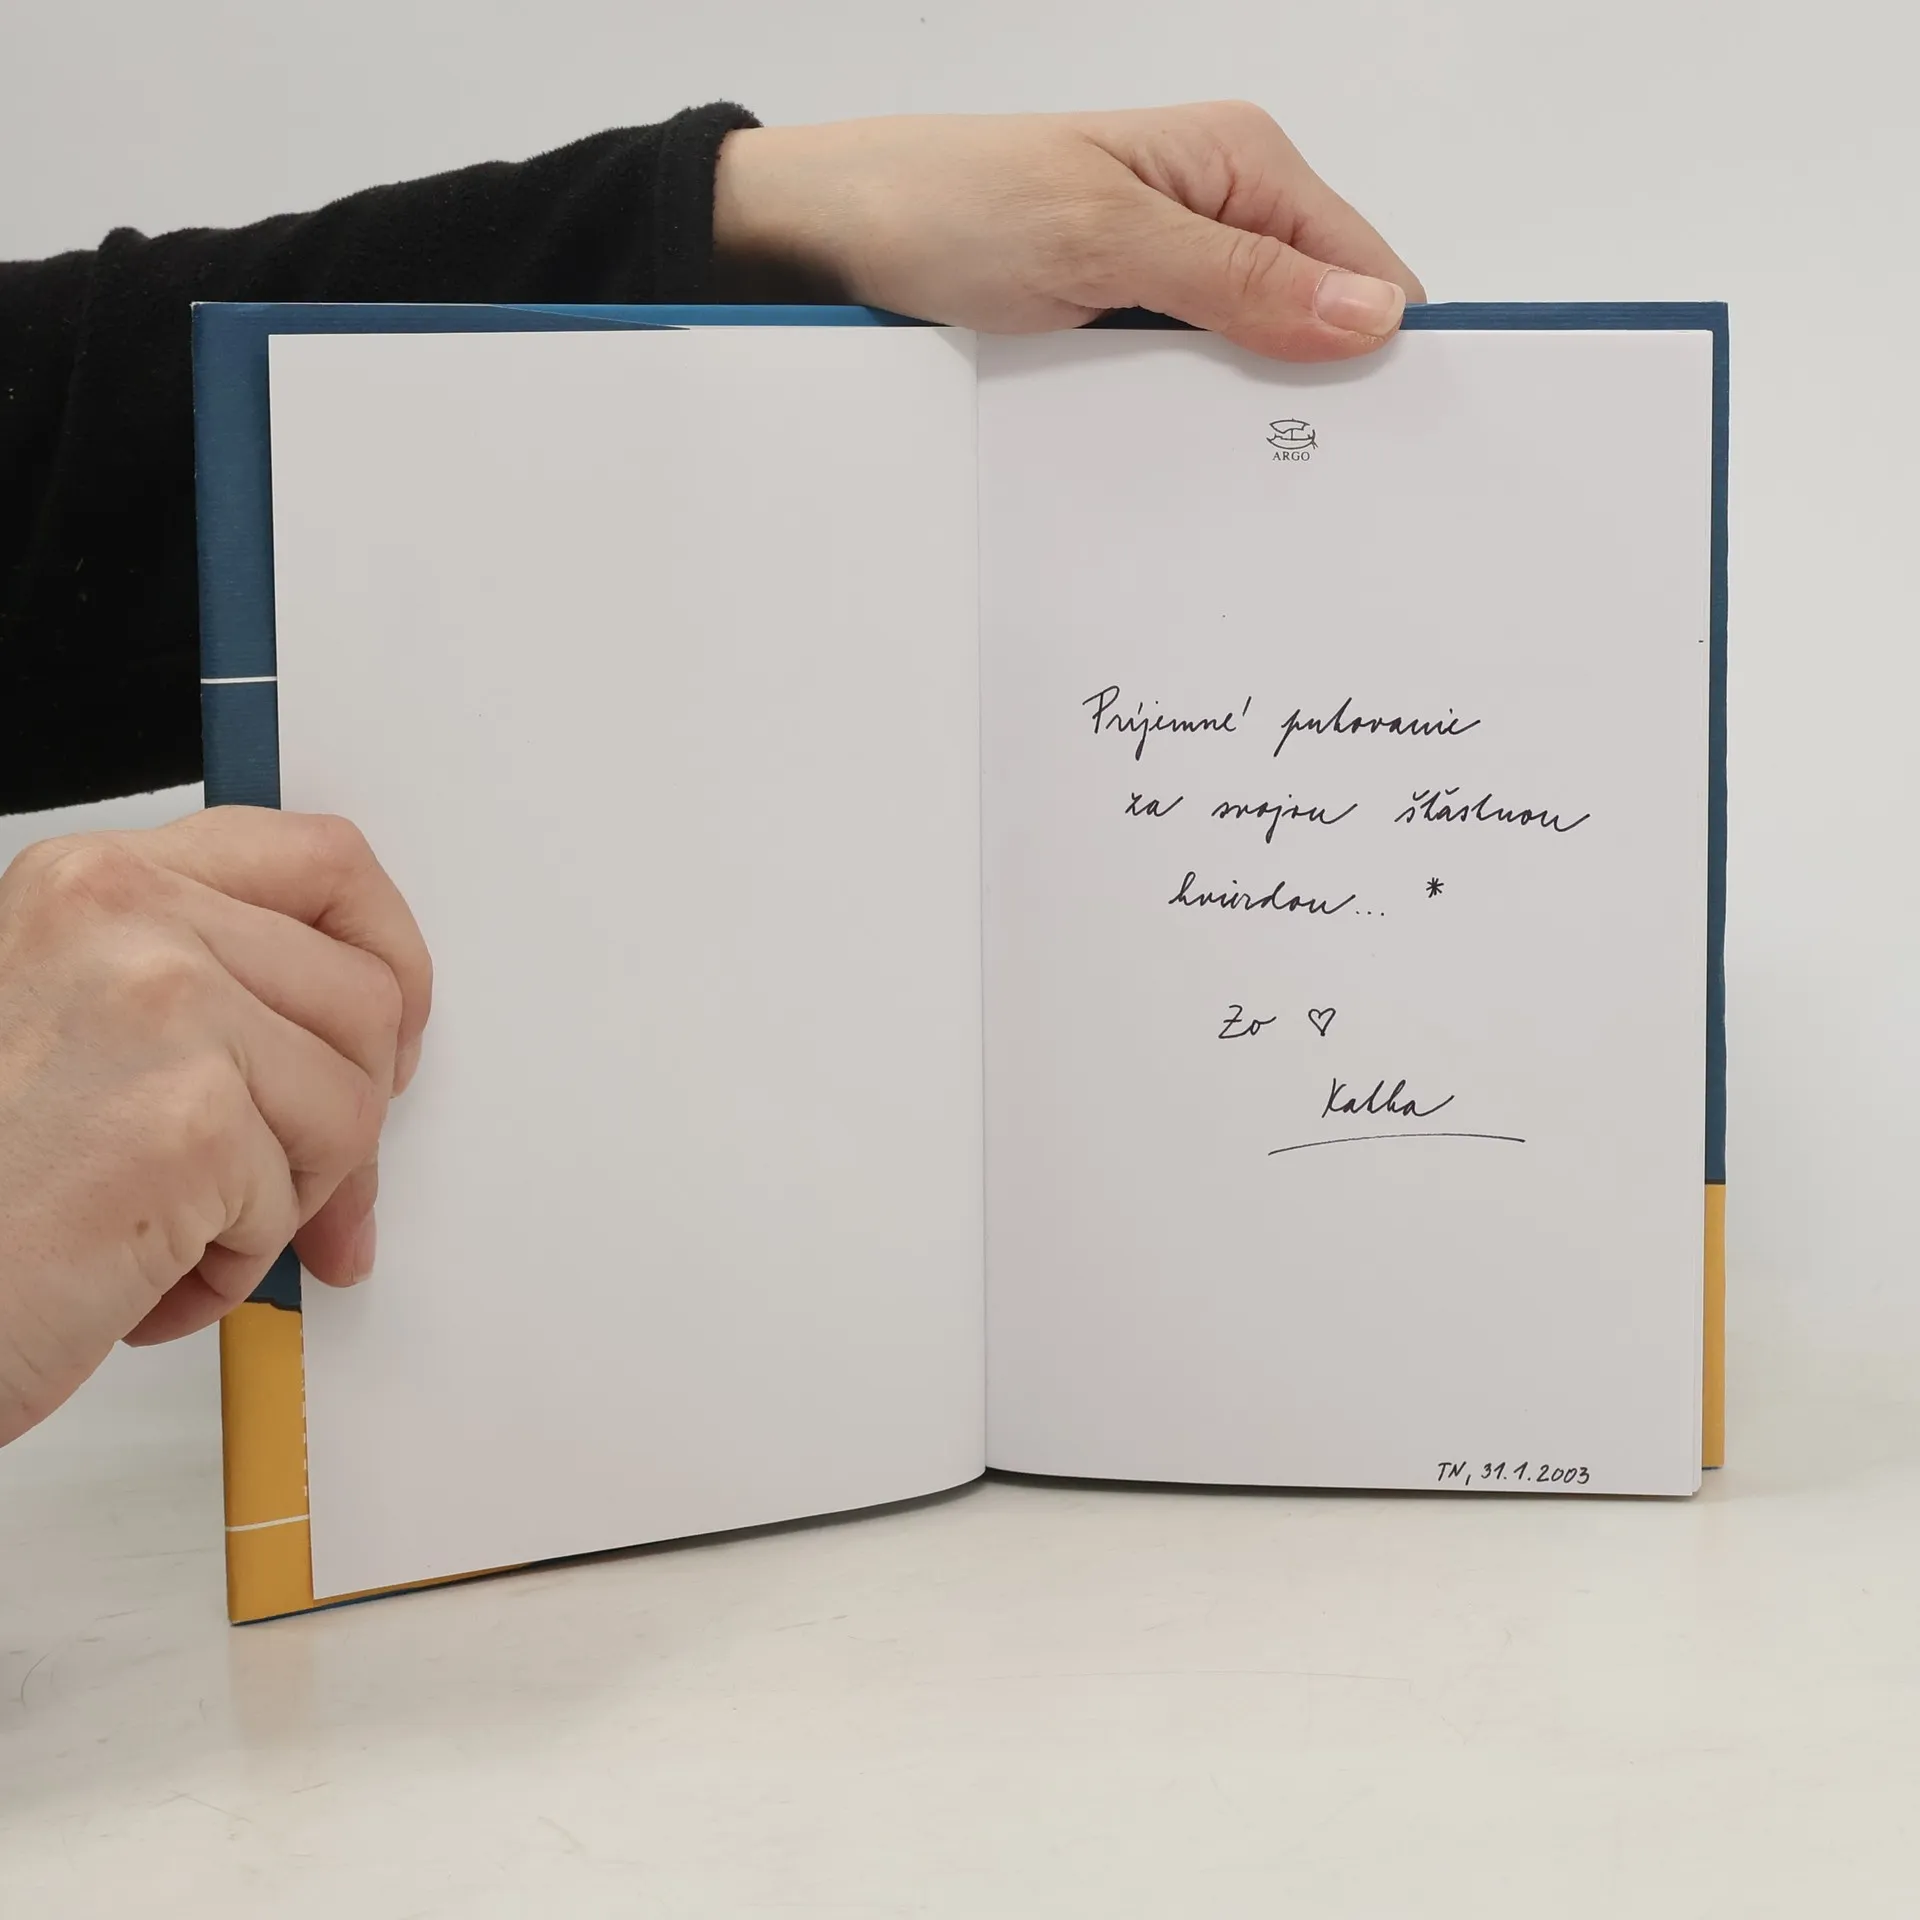 ARGO
Príjemné putovanie
za svojou štastnou
hviezdou... *
Zo ♡
Katka
TN, 31.1.2003